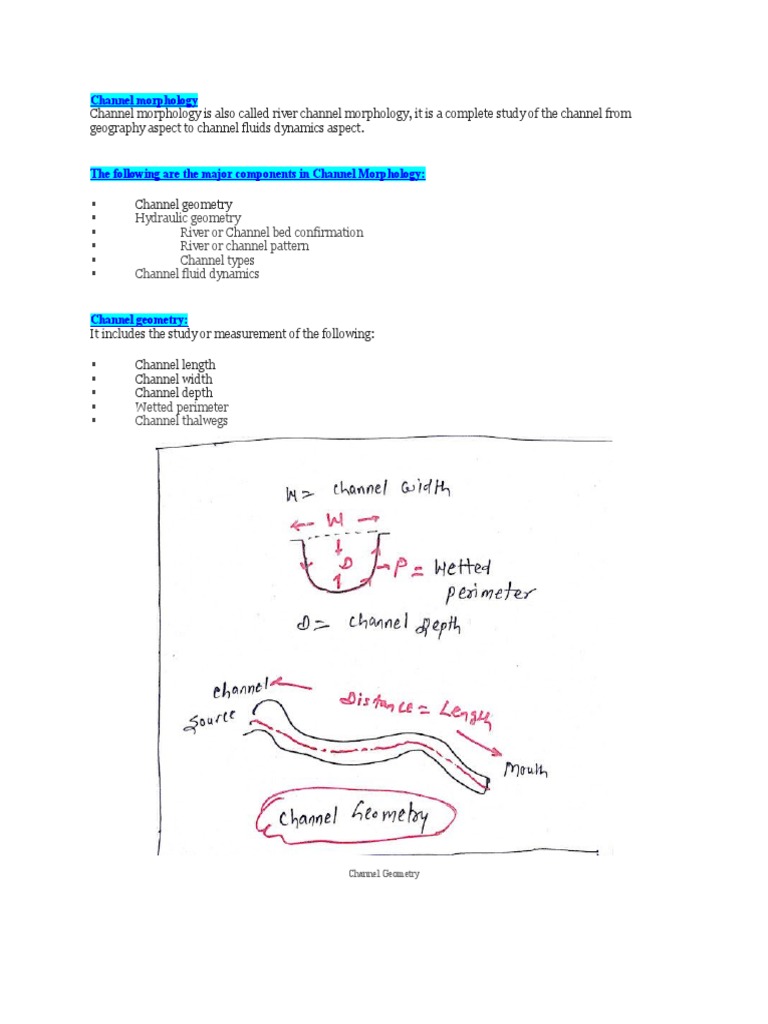 Channel morphology
Channel morphology is also called river channel morphology, it is a complete study of the channel from
geography aspect to channel fluids dynamics aspect.
The following are the major components in Channel Morphology:
▪ Channel geometry
▪ Hydraulic geometry
▪ River or Channel bed confirmation
▪ River or channel pattern
▪ Channel types
▪ Channel fluid dynamics
Channel geometry:
It includes the study or measurement of the following:
▪ Channel length
▪ Channel width
▪ Channel depth
▪ Wetted perimeter
▪ Channel thalwegs
W = Channel Width
W
D
P = Wetted
perimeter
D = Channel Depth
Channel
Source
Distance = Length
Mouth
Channel Geometry
Channel Geometry